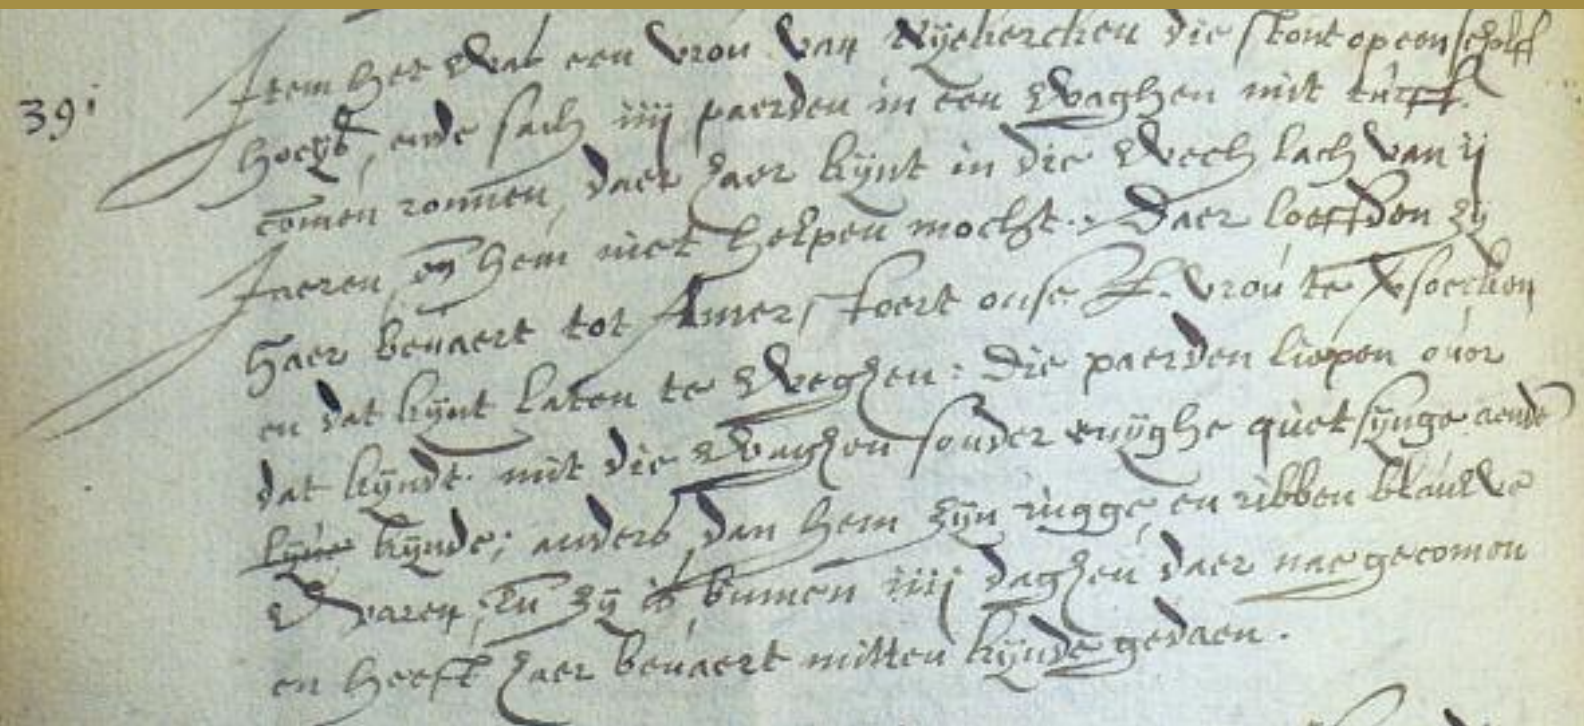 Item het was een vrou van Nyekercken die stont op een schelff
391 hoeys, ende sach iiij paerden in een waghen mit turff
comen ronnen, daer haer kijnt in die wech lach van ij
Jaeren, en hem niet helpen mocht. Daer loeffden zij
haer bevaert tot Amersfoert onse L. vrou te soecken
en dat kijnt laten te weghen: Die paerden liepen over
dat kijndt mit die waghen sonder enijghe quetsijnge aende
kijnde; anders dan hem zijn rugge en ribben blauwe
waren, En zij is binnen iiij daghen daer nae gecomen
en heeft haer bevaert mitten kijnde gedaen.